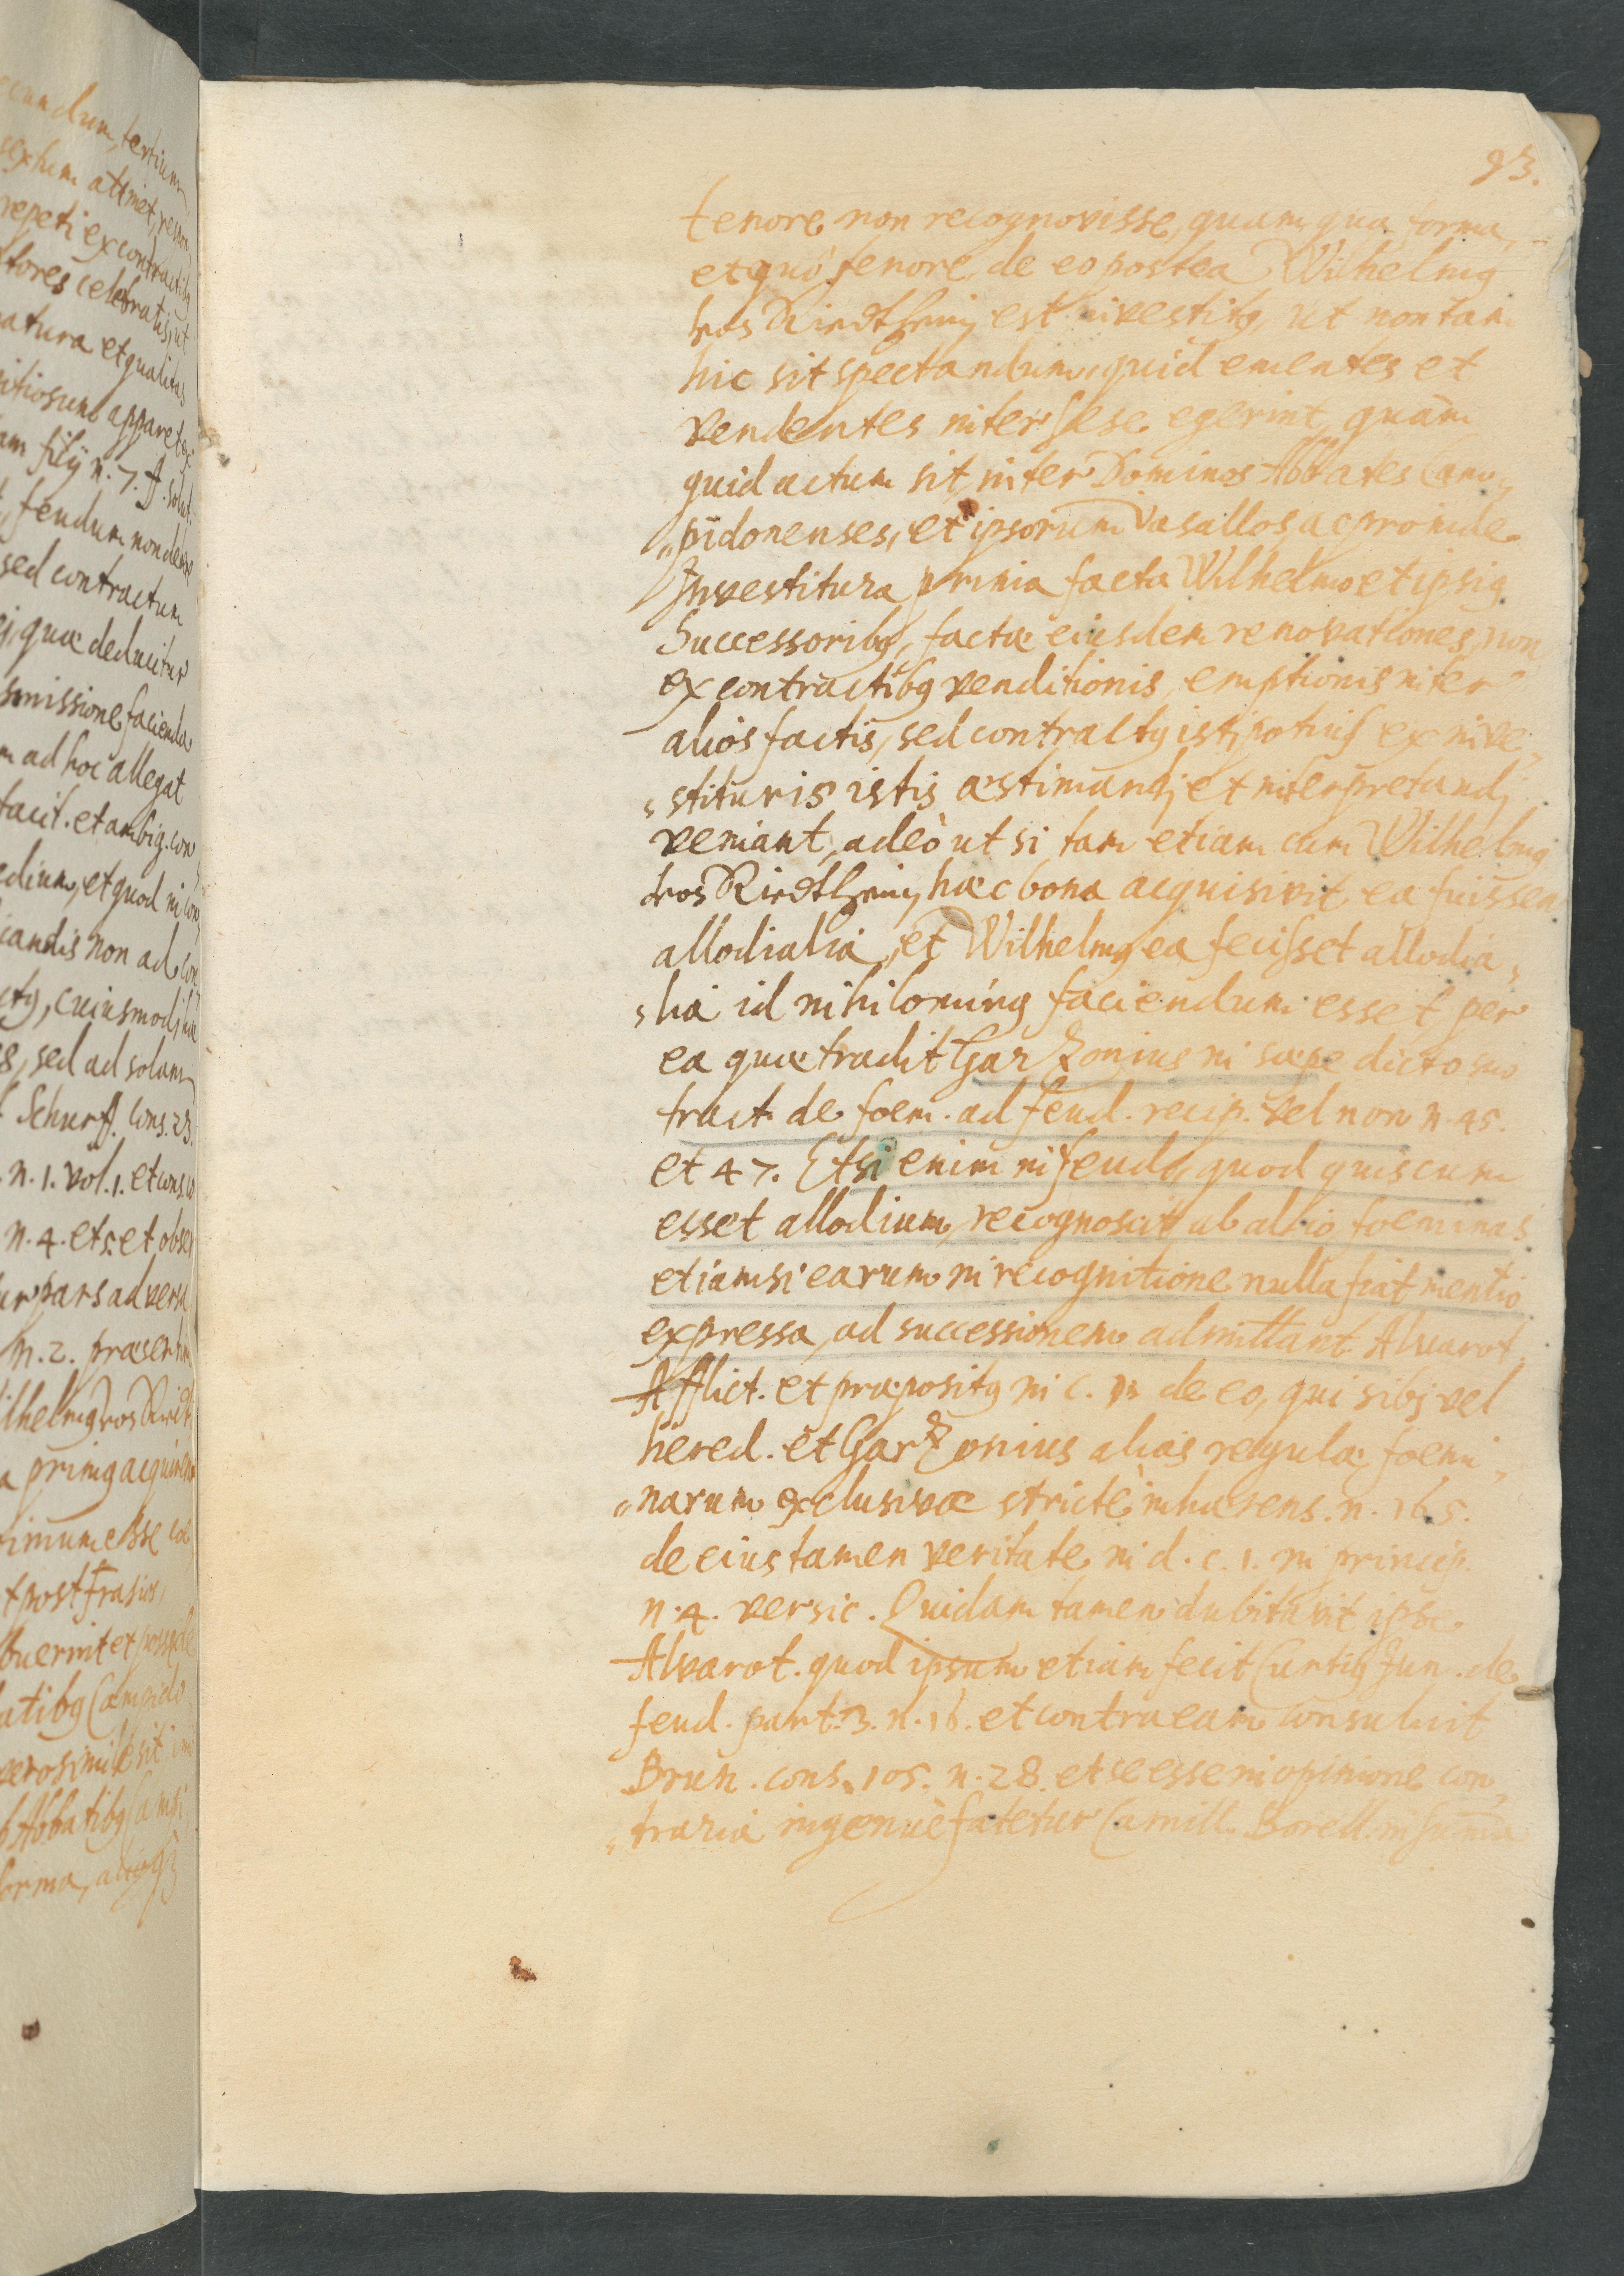 cundum, tertium
sextum attinet, respon
repeti ex contractibg
tores celebratis, ut
natura et qualitas
itiosum apparet
am filÿ n. 7. ff. solut.
feudum non
sed contractum
quæ deducitur
missione facienda
m ad hoc allegat
tacit. et ambig. con
edium, et quod in con
iandis non ad con
ctg, cuiusmodj
8, sed ad solam
Schurff. cons. 23.
n. 1. vol. 1. et cons.
n. 4. et 5. et obser
ur pars adversa
n. 2. præsertim
ilhelmg von Riedt
a primg acquirens
imum esse
t post Frasios
buerint et posse
atibg Campido
verosimile sit
Abbatibg Campi
forma, ac
93.
tenore non recognovisse, quam qua forma,
et quò tenore de eo postea Wilhelmg
von Riedtheim est investitg, ut non tam
hic sit spectandum, quid ementes et
vendentes inter sese egerint, quàm
quid actum sit inter Dominos Abbates Cam„
„pidonenses, et ipsorum Vasallos, ac proinde
Investitura prima facta Wilhelmo et ipsig
Successoribg, factæ eiusdem renovationes, non
ex contractibg venditionis, emptionis inter
aliòs factis, sed contractg istj potius ex inve„
„stituris istis æstimandj et interpretandj
veniant, adeò ut si tam etiam cum Wilhelmg
von Riedtheim hæc bona acquisivit ea fuissent
allodialia, et Wilhelmg ea fecisset allodia„
„lia id nihiloming faciendum esset per
ea quæ tradit Garzonius in sæpe dicto suo
tract. de foem. ad feud. recip. vel non n. 45.
et 47. Etsi enim in feudo, quod quis cum
esset allodium, recognoscit ab alio, foeminas
etiamsi earum in recognitione nulla fiat mentio
expressa, ad successionem admittant Alvarot,
Afflict. et præpositg in c. 1. de eo, qui sibj vel
hered. et Garzonius alias regulæ foemi„
„narum exclusivæ strictè inhærens. n. 165.
de eius tamen veritate in d. c. 1. in princip.
n. 4. versic. Quidam tamen dubitavit ipse
Alvarot. quod ipsum etiam fecit Curtig Jun. de
feud. part. 3. n. 16. et contra eam consuluit
Brun. cons. 105. n. 28. et se esse in opinione con„
„traria ingenuè fatetur Camill. Borell. in summa